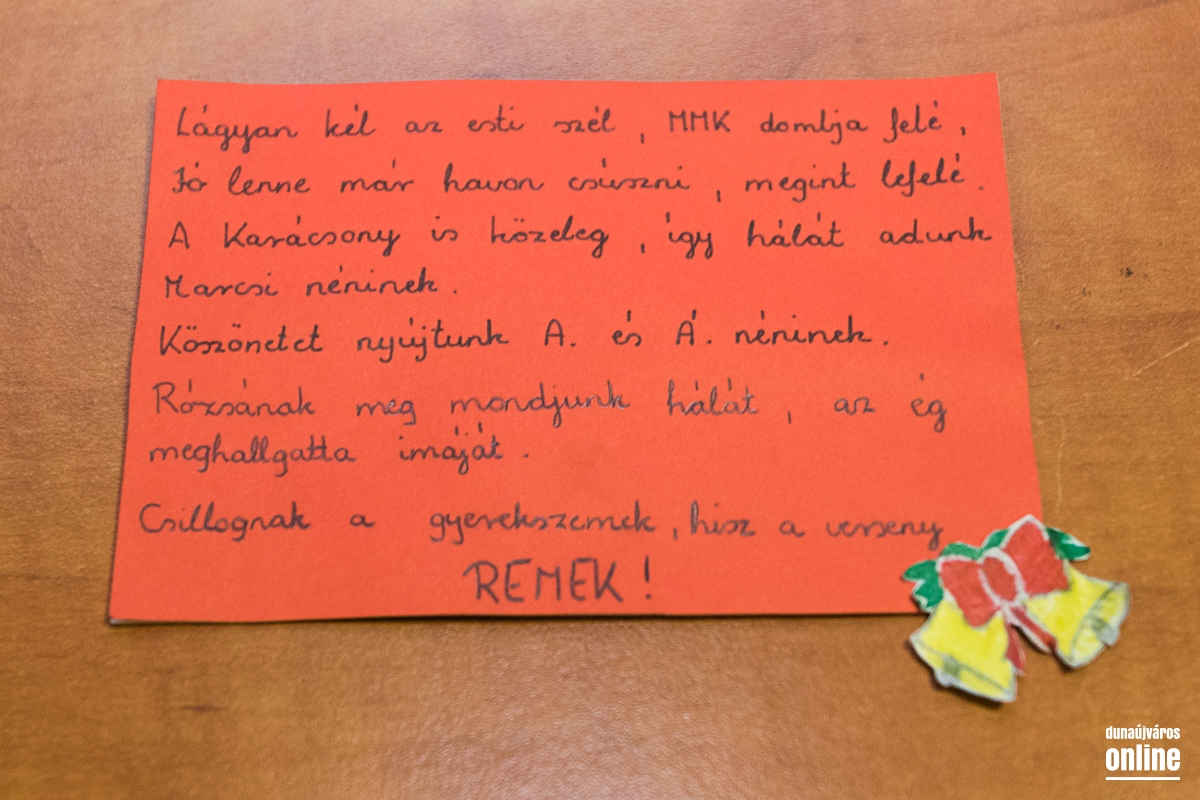 Lágyan kél az esti szél, MMK domlja felé,
Jó lenne már havon csúszni, megint lefelé.
A Karácsony is közeleg, így hálát adunk
Marcsi néninek.
Köszönetet nyújtunk A. és Á. néninek.
Rózsának meg mondjunk hálát, az ég
meghallgatta imáját.
Csillognak a gyerekszemek, hisz a verseny
REMEK!
dunaújváros
online